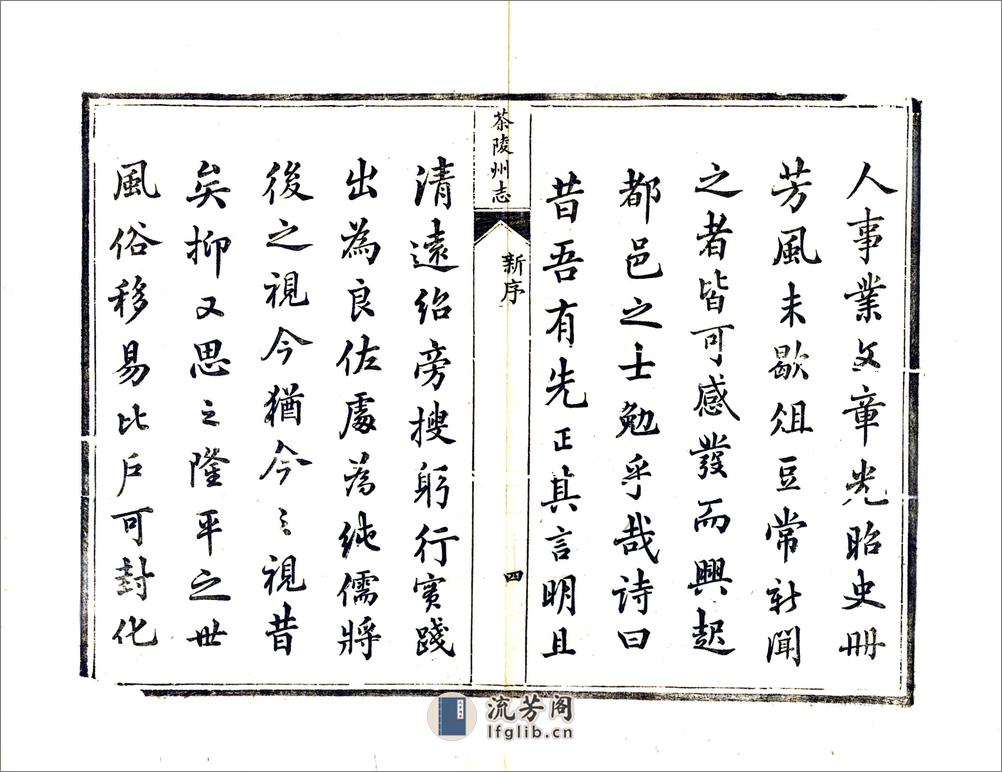 人事業文章光昭史冊
芳風未歇俎豆常新聞
之者皆可感發而興起
都邑之士勉乎哉詩曰
昔吾有先正其言明且
茶陵州志
新序
四
清遠紹旁搜躬行實踐
出為良佐處為純儒將
後之視今猶今之視昔
矣抑又思之隆平之世
風俗移易比戶可封化
流芳阁
lfglib.cn